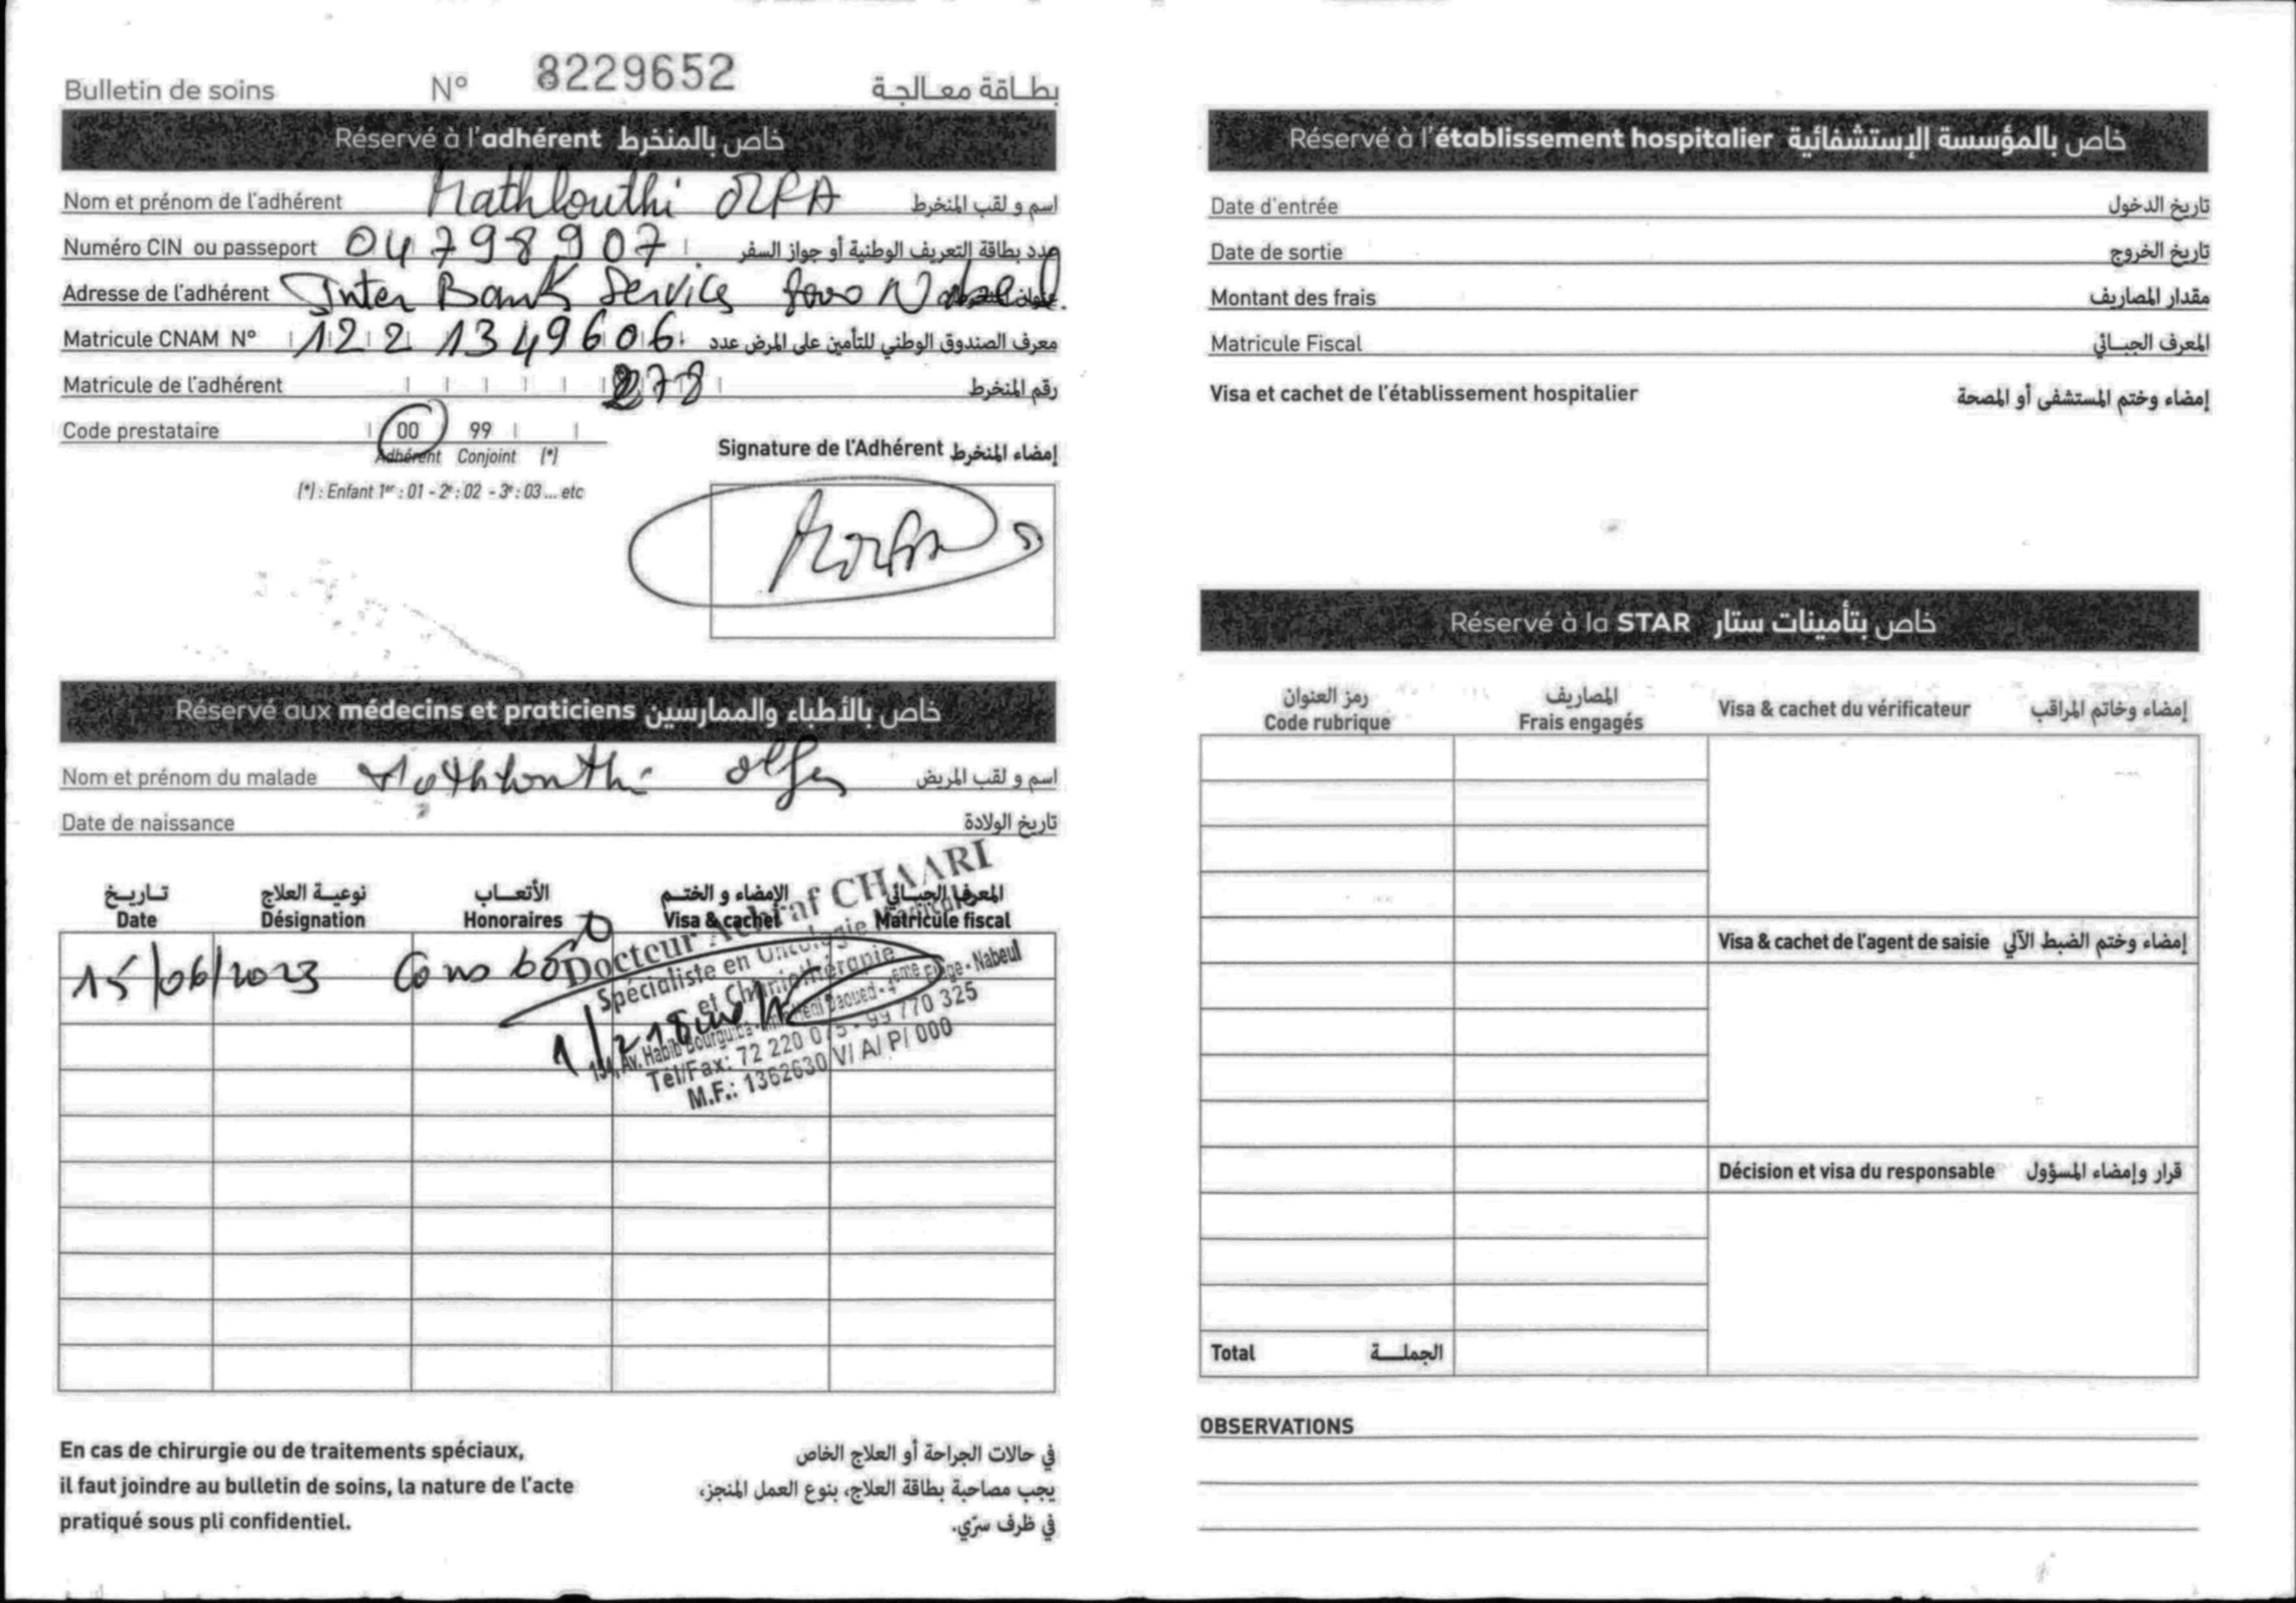 Bulletin de soins N° 8229652 بطاقة معالجة
Réservé à l'adhérent خاص بالمنخرط
Nom et prénom de l'adhérent Mathlouthi OLFA اسم و لقب المنخرط
Numéro CIN ou passeport 04798907 عدد بطاقة التعريف الوطنية أو جواز السفر
Adresse de l'adhérent Inter Bank Services 8000 Nabeul
Matricule CNAM N° 122 1349606 معرف الصندوق الوطني للتأمين على المرض عدد
Matricule de l'adhérent 278 رقم المنخرط
Code prestataire 00 99
Adhérent Conjoint (*)
(*) : Enfant 1er : 01 - 2e : 02 - 3e : 03 ... etc
Signature de l'Adhérent إمضاء المنخرط
Réservé aux médecins et praticiens خاص بالأطباء والممارسين
Nom et prénom du malade Mathlouthi Olfa اسم و لقب المريض
Date de naissance تاريخ الولادة
تـاريـخ نوعيـة العلاج الأتعـاب الإمضاء و الختـم المعرف الجبـائي
Date Désignation Honoraires Visa & cachet Matricule fiscal
15/06/2023 Cons
Docteur Achraf CHAARI
Spécialiste en Oncologie Médicale
et Chimiothérapie
Av. Habib Bourguiba - Daoued - 4ème Etage - Nabeul
Tél/Fax: 72 220 075 - 99 770 325
M.F.: 1362630 V/ A/ P/ 000
En cas de chirurgie ou de traitements spéciaux,
il faut joindre au bulletin de soins, la nature de l'acte
pratiqué sous pli confidentiel.
في حالات الجراحة أو العلاج الخاص
يجب مصاحبة بطاقة العلاج، بنوع العمل المنجز،
في ظرف سرّي.
Réservé à l'établissement hospitalier خاص بالمؤسسة الإستشفائية
Date d'entrée تاريخ الدخول
Date de sortie تاريخ الخروج
Montant des frais مقدار المصاريف
Matricule Fiscal المعرف الجبـائي
Visa et cachet de l'établissement hospitalier إمضاء وختم المستشفى أو المصحة
Réservé à la STAR خاص بتأمينات ستار
رمز العنوان المصاريف
Code rubrique Frais engagés Visa & cachet du vérificateur إمضاء وخاتم المراقب
Visa & cachet de l'agent de saisie إمضاء وختم الضبط الآلي
Décision et visa du responsable قرار وإمضاء المسؤول
Total الجملـــة
OBSERVATIONS